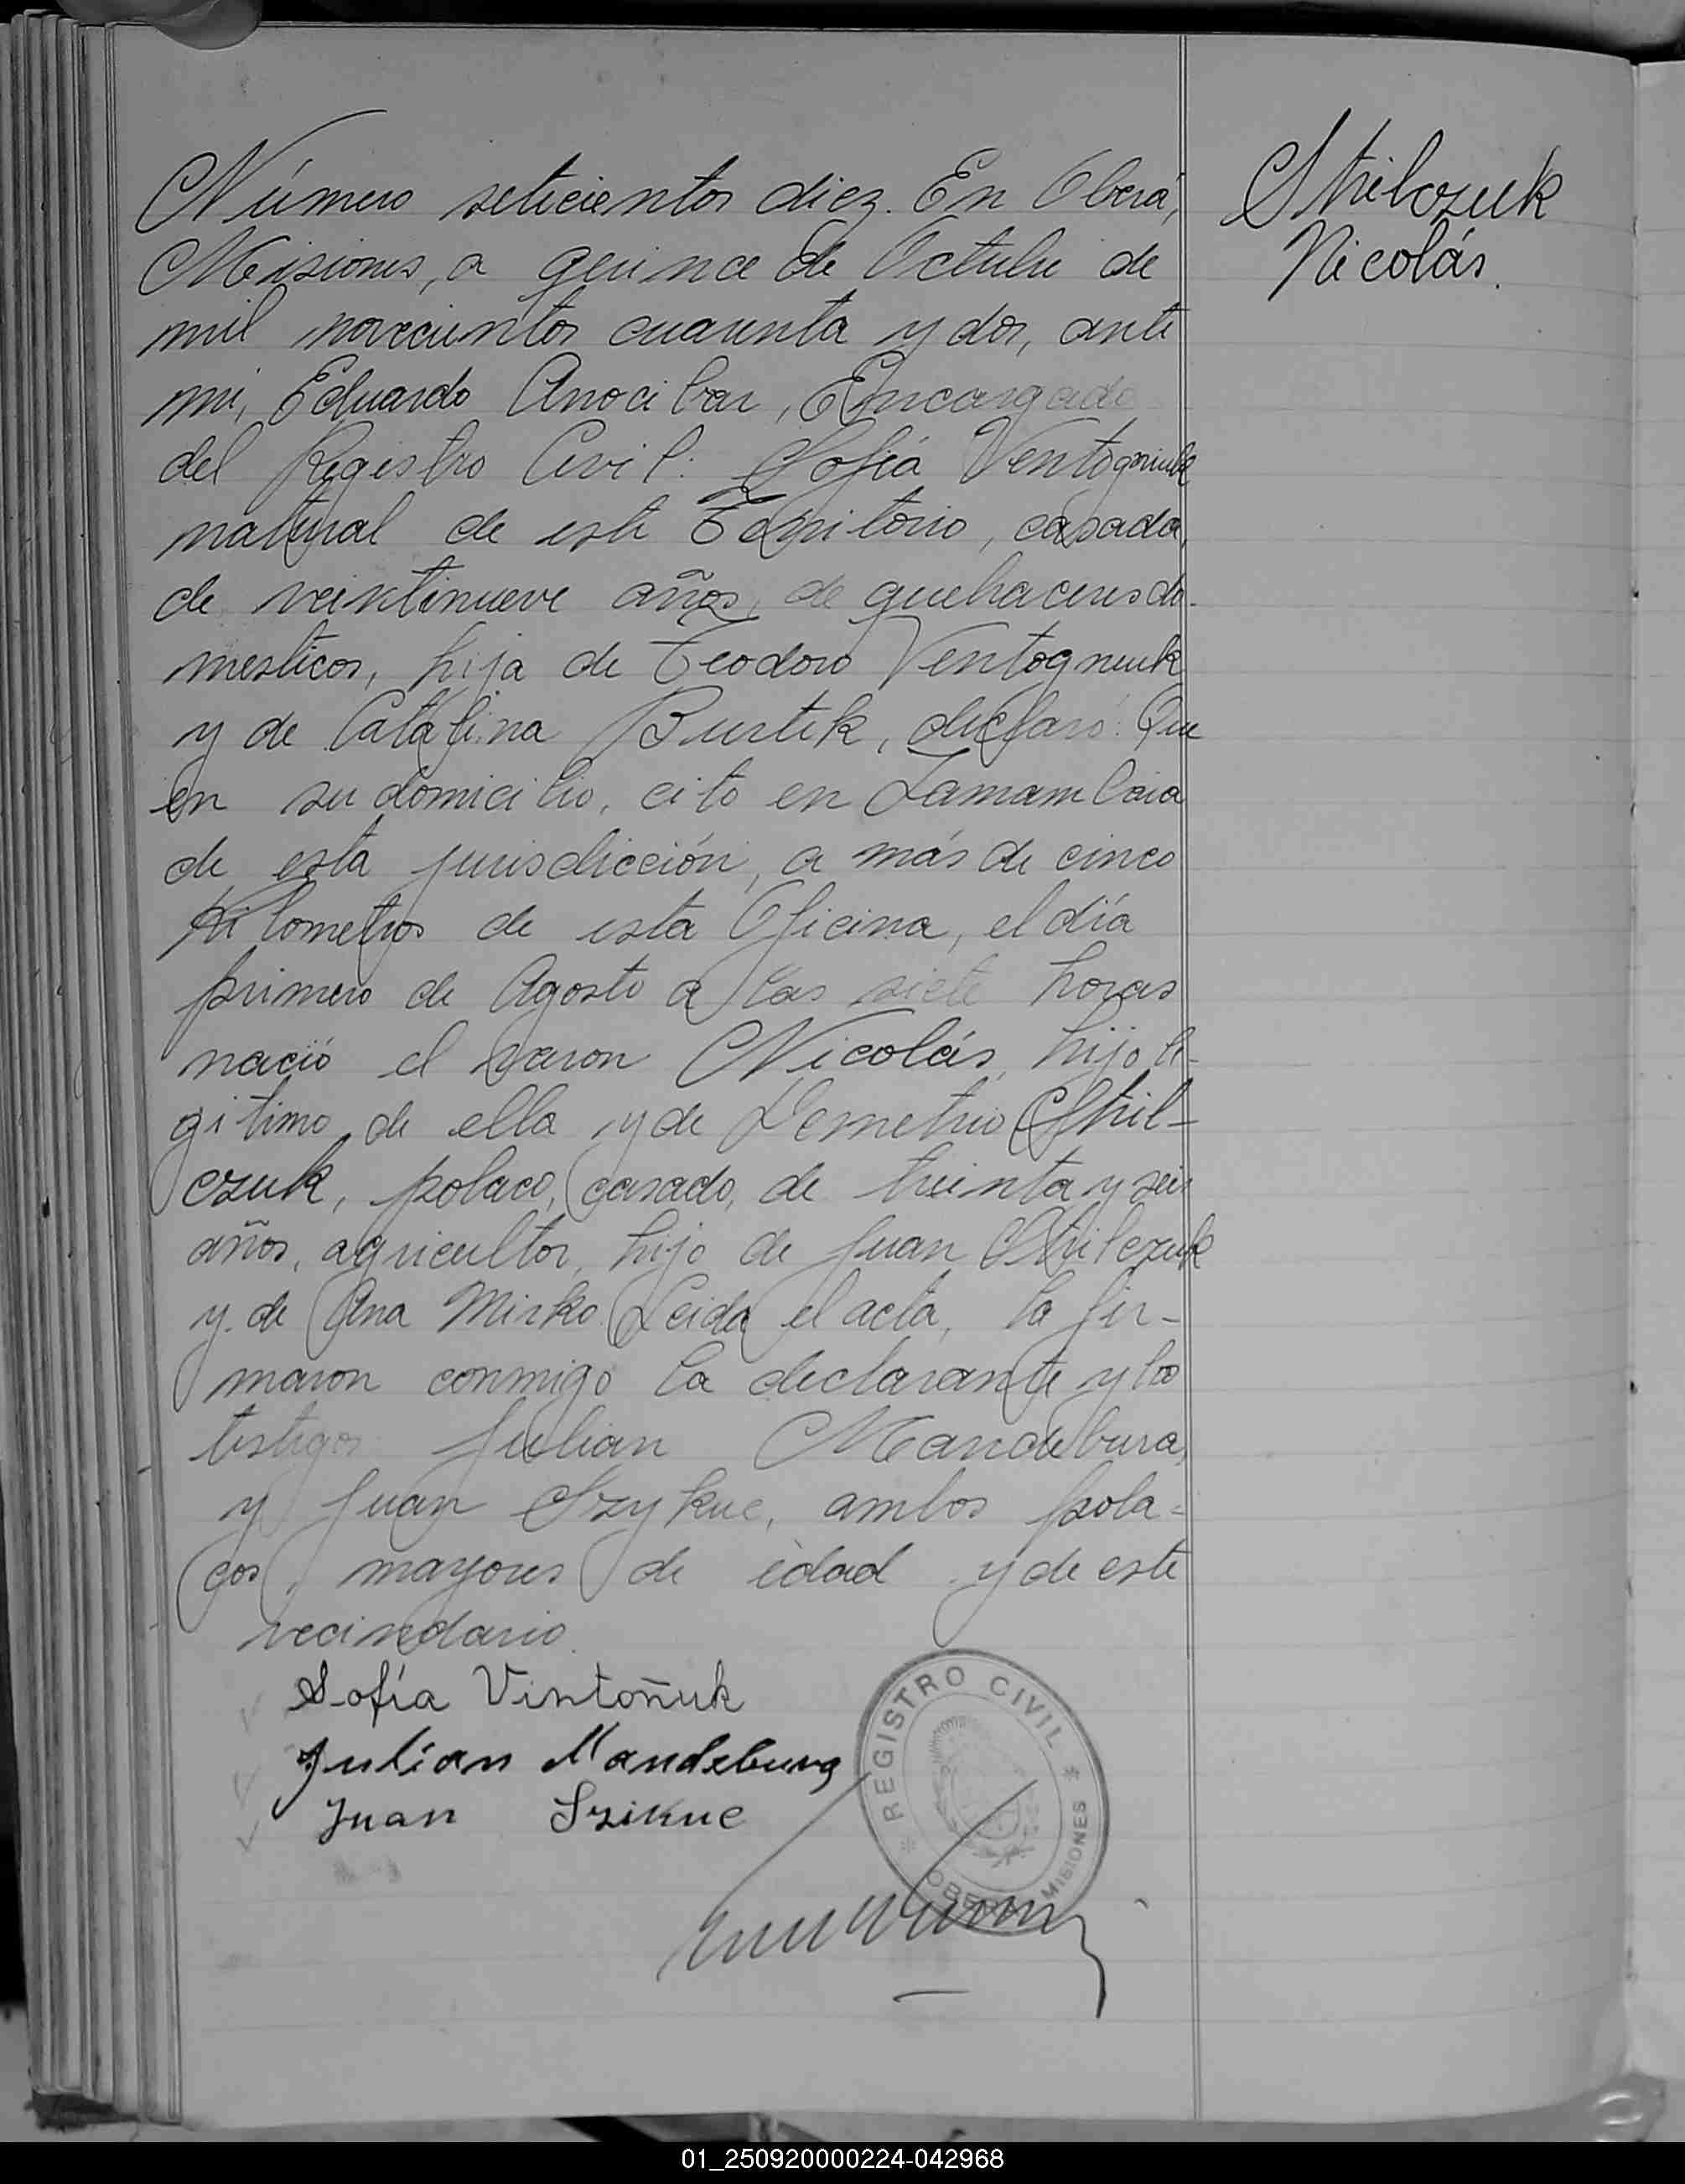 Número seticientos diez. En Oberá,
Misiones, a quince de Octubre de
mil novecientos cuarenta y dos, ante
mi, Eduardo Anocibar, Encargado
del Registro Civil: Sofía Ventogniuk
natural de este Territorio, casada,
de veintinueve años, de quehaceres do-
mesticos, hija de Teodoro Ventogneuk
y de Catalina Burtek, declaró: Que
en su domicilio, cito en Zamambaia
de esta jurisdicción, a más de cinco
Kilometros de esta Oficina, el día
primero de Agosto a las siete horas
nació el varon Nicolás, hijo le-
gitimo de ella y de Demetrio Sthil-
czuk, polaco, casado, de treinta y seis
años, agricultor, hijo de Juan Sthilczuk
y de Ana Mirko. Leida el acta, la fir-
maron conmigo la declarante y los
testigos Julian Mandebura,
y Juan Szykuc, ambos pola-
cos, mayores de edad y de este
vecindario.
Sthilczuk
Nicolás.
Sofía Vintoñuk
Julian Mandebura
Juan Szikuc
* REGISTRO CIVIL *
OBERA MISIONES
01_250920000224-042968